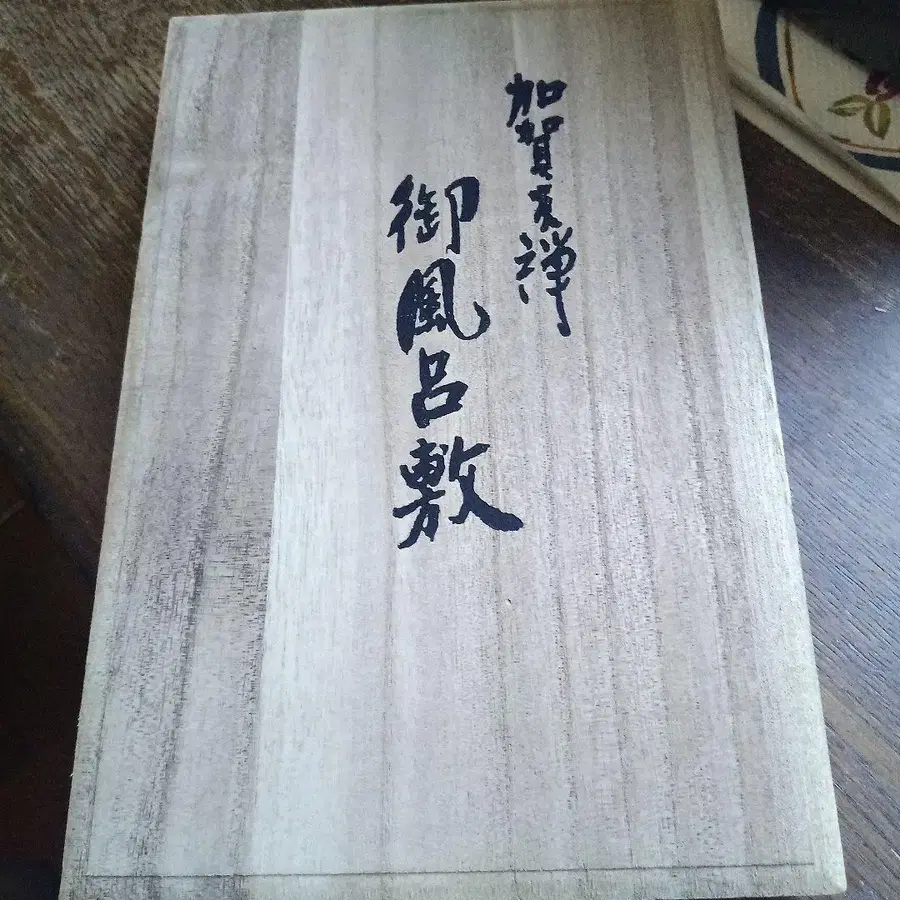 加賀友禅
御風呂敷